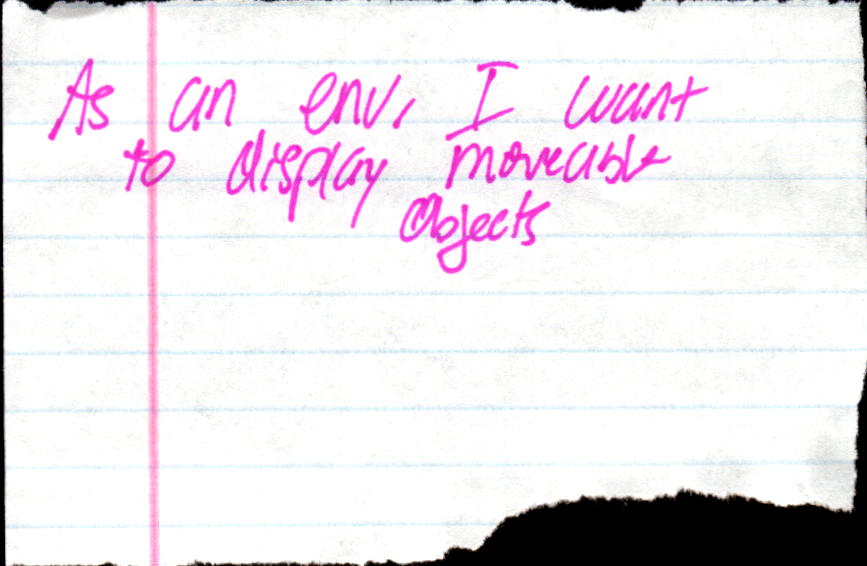 As an env, I want
to display moveable
objects